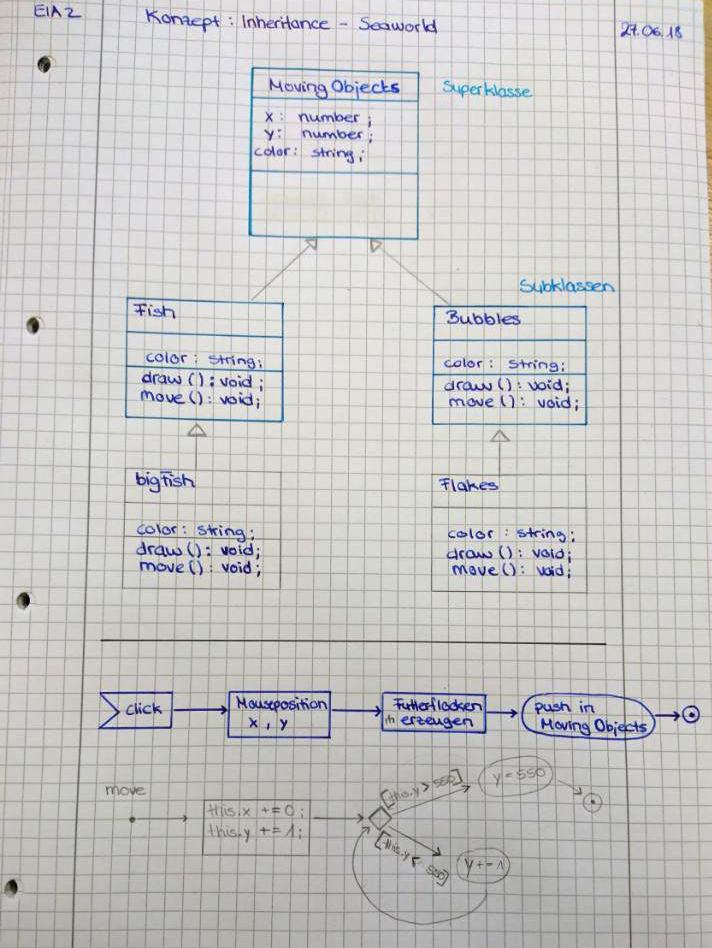 EIA2
Konzept : Inheritance - Seaworld
27.06.18
Moving Objects
Superklasse
x : number ;
y : number ;
color : string ;
Subklassen
Fish
color : string ;
draw () : void ;
move () : void ;
Bubbles
color : string ;
draw () : void ;
move () : void ;
bigfish
color : string ;
draw () : void ;
move () : void ;
Flakes
color : string ;
draw () : void ;
move () : void ;
click
Mouseposition
x , y
Futterflocken
erzeugen
push in
Moving Objects
move
this.x += 0 ;
this.y += 1 ;
[this.y > 550]
y = 550
[this.y < 550]
y += 1